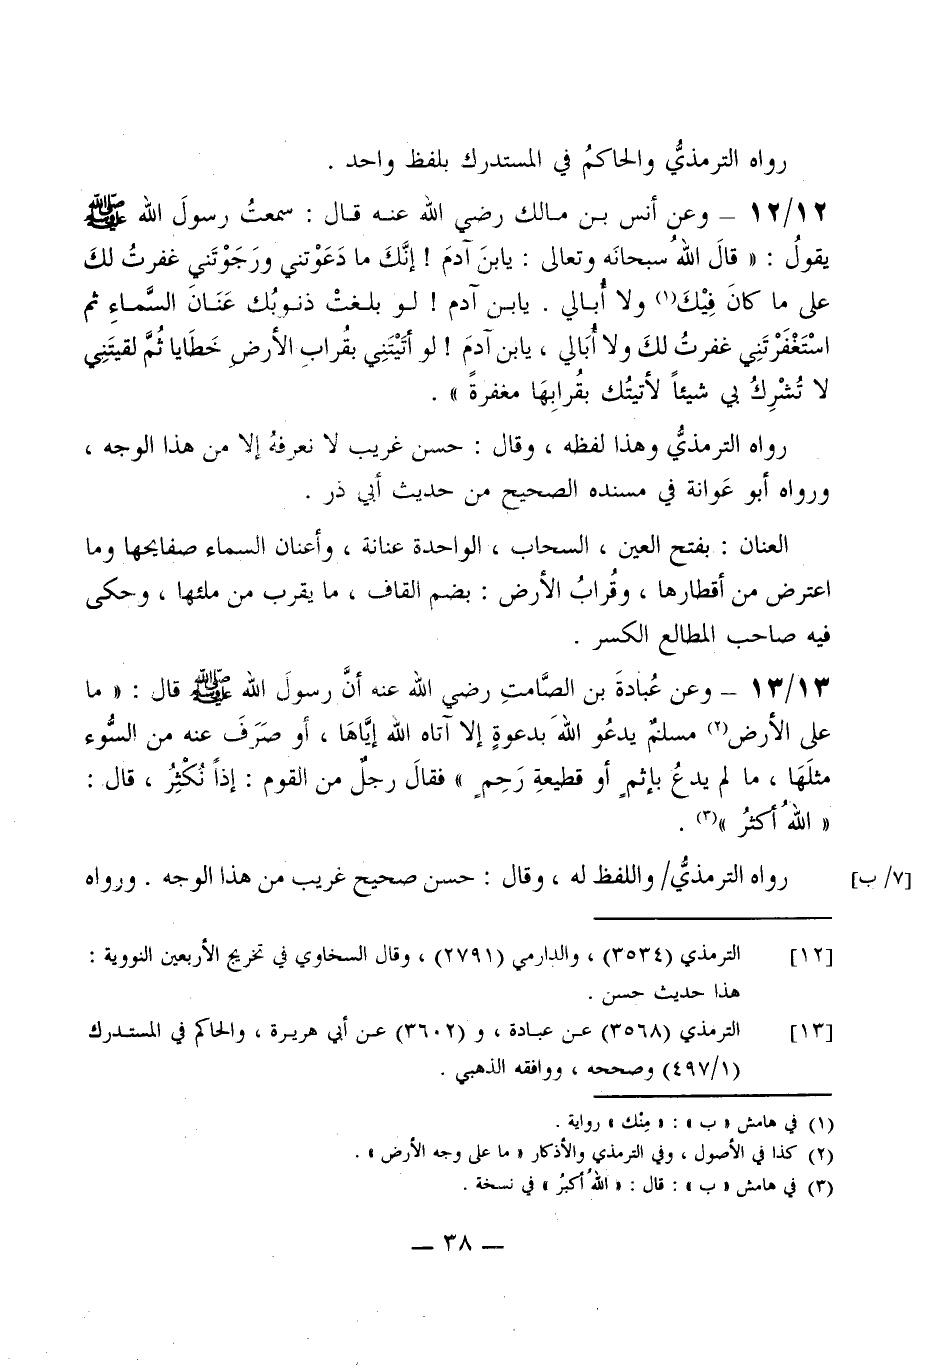 رواه الترمذيُّ والحاكمُ في المستدرك بلفظ واحد .
١٢/١٢ – وعن أنس بـن مـالك رضي الله عنـه قـال : سمعتُ رسولَ الله ﷺ
يقولُ : « قالَ اللهُ سبحانَه وتعالى : يابنَ آدمَ ! إنَّكَ ما دَعَوْتني ورَجَوْتَني غفرتُ لكَ
على ما كانَ فِيْكَ(١) ولا أُبـالي . يابـن آدم ! لـو بلغـتْ ذنـوبُك عَنَـانَ السَّمـاءِ ثم
اسْتَغْفَرْتَنِي غفرتُ لكَ ولا أُبَالي ، يابن آدمَ ! لو أتَيْتَنِي بقُرابِ الأرضِ خَطَايا ثُمَّ لقيتَنِي
لا تُشْرِكُ بي شيئاً لأتيتُك بقُرابِهَا مغفرةً » .
رواه الترمذيُّ وهذا لفظه ، وقال : حسن غريب لا نعرفهُ إلا من هذا الوجه ،
ورواه أبو عَوانة في مسنده الصحيح من حديث أبي ذر .
العنان : بفتح العين ، السحاب ، الواحدة عنانة ، وأعنان السماء صفايحها وما
اعترض من أقطارها ، وقُرابُ الأرض : بضم القاف ، ما يقرب من ملئها ، وحكى
فيه صاحب المطالع الكسر .
١٣/١٣ – وعن عُبادةَ بن الصَّامتِ رضي الله عنه أنَّ رسولَ الله ﷺ قال : « ما
على الأرض(٢) مسلمٌ يدعُو اللهَ بدعوةٍ إلا آتاه الله إيَّاهَا ، أو صَرَفَ عنه من السُّوء
مثلَهَا ، ما لم يدعُ بإثمٍ أو قطيعةِ رَحِمٍ » فقالَ رجلٌ من القوم : إذاً نُكْثِرُ ، قال :
« اللهُ أكثرُ »(٣) .
رواه الترمذيُّ/ واللفظ له ، وقال : حسن صحيح غريب من هذا الوجه . ورواه [٧/ ب]
[١٢] الترمذي (٣٥٣٤) ، والدارمي (٢٧٩١) ، وقال السخاوي في تخريج الأربعين النووية :
هذا حديث حسن .
[١٣] الترمذي (٣٥٦٨) عـن عبـادة ، و (٣٦٠٢) عـن أبي هريـرة ، والحاكم في المستـدرك
(٤٩٧/١) وصححه ، ووافقه الذهبي .
(١) في هامش « ب » : « مِنْك » رواية .
(٢) كذا في الأصول ، وفي الترمذي والأذكار « ما على وجه الأرض » .
(٣) في هامش « ب » : قال : « اللهُ أكبرُ » في نسخة .
– ٣٨ –